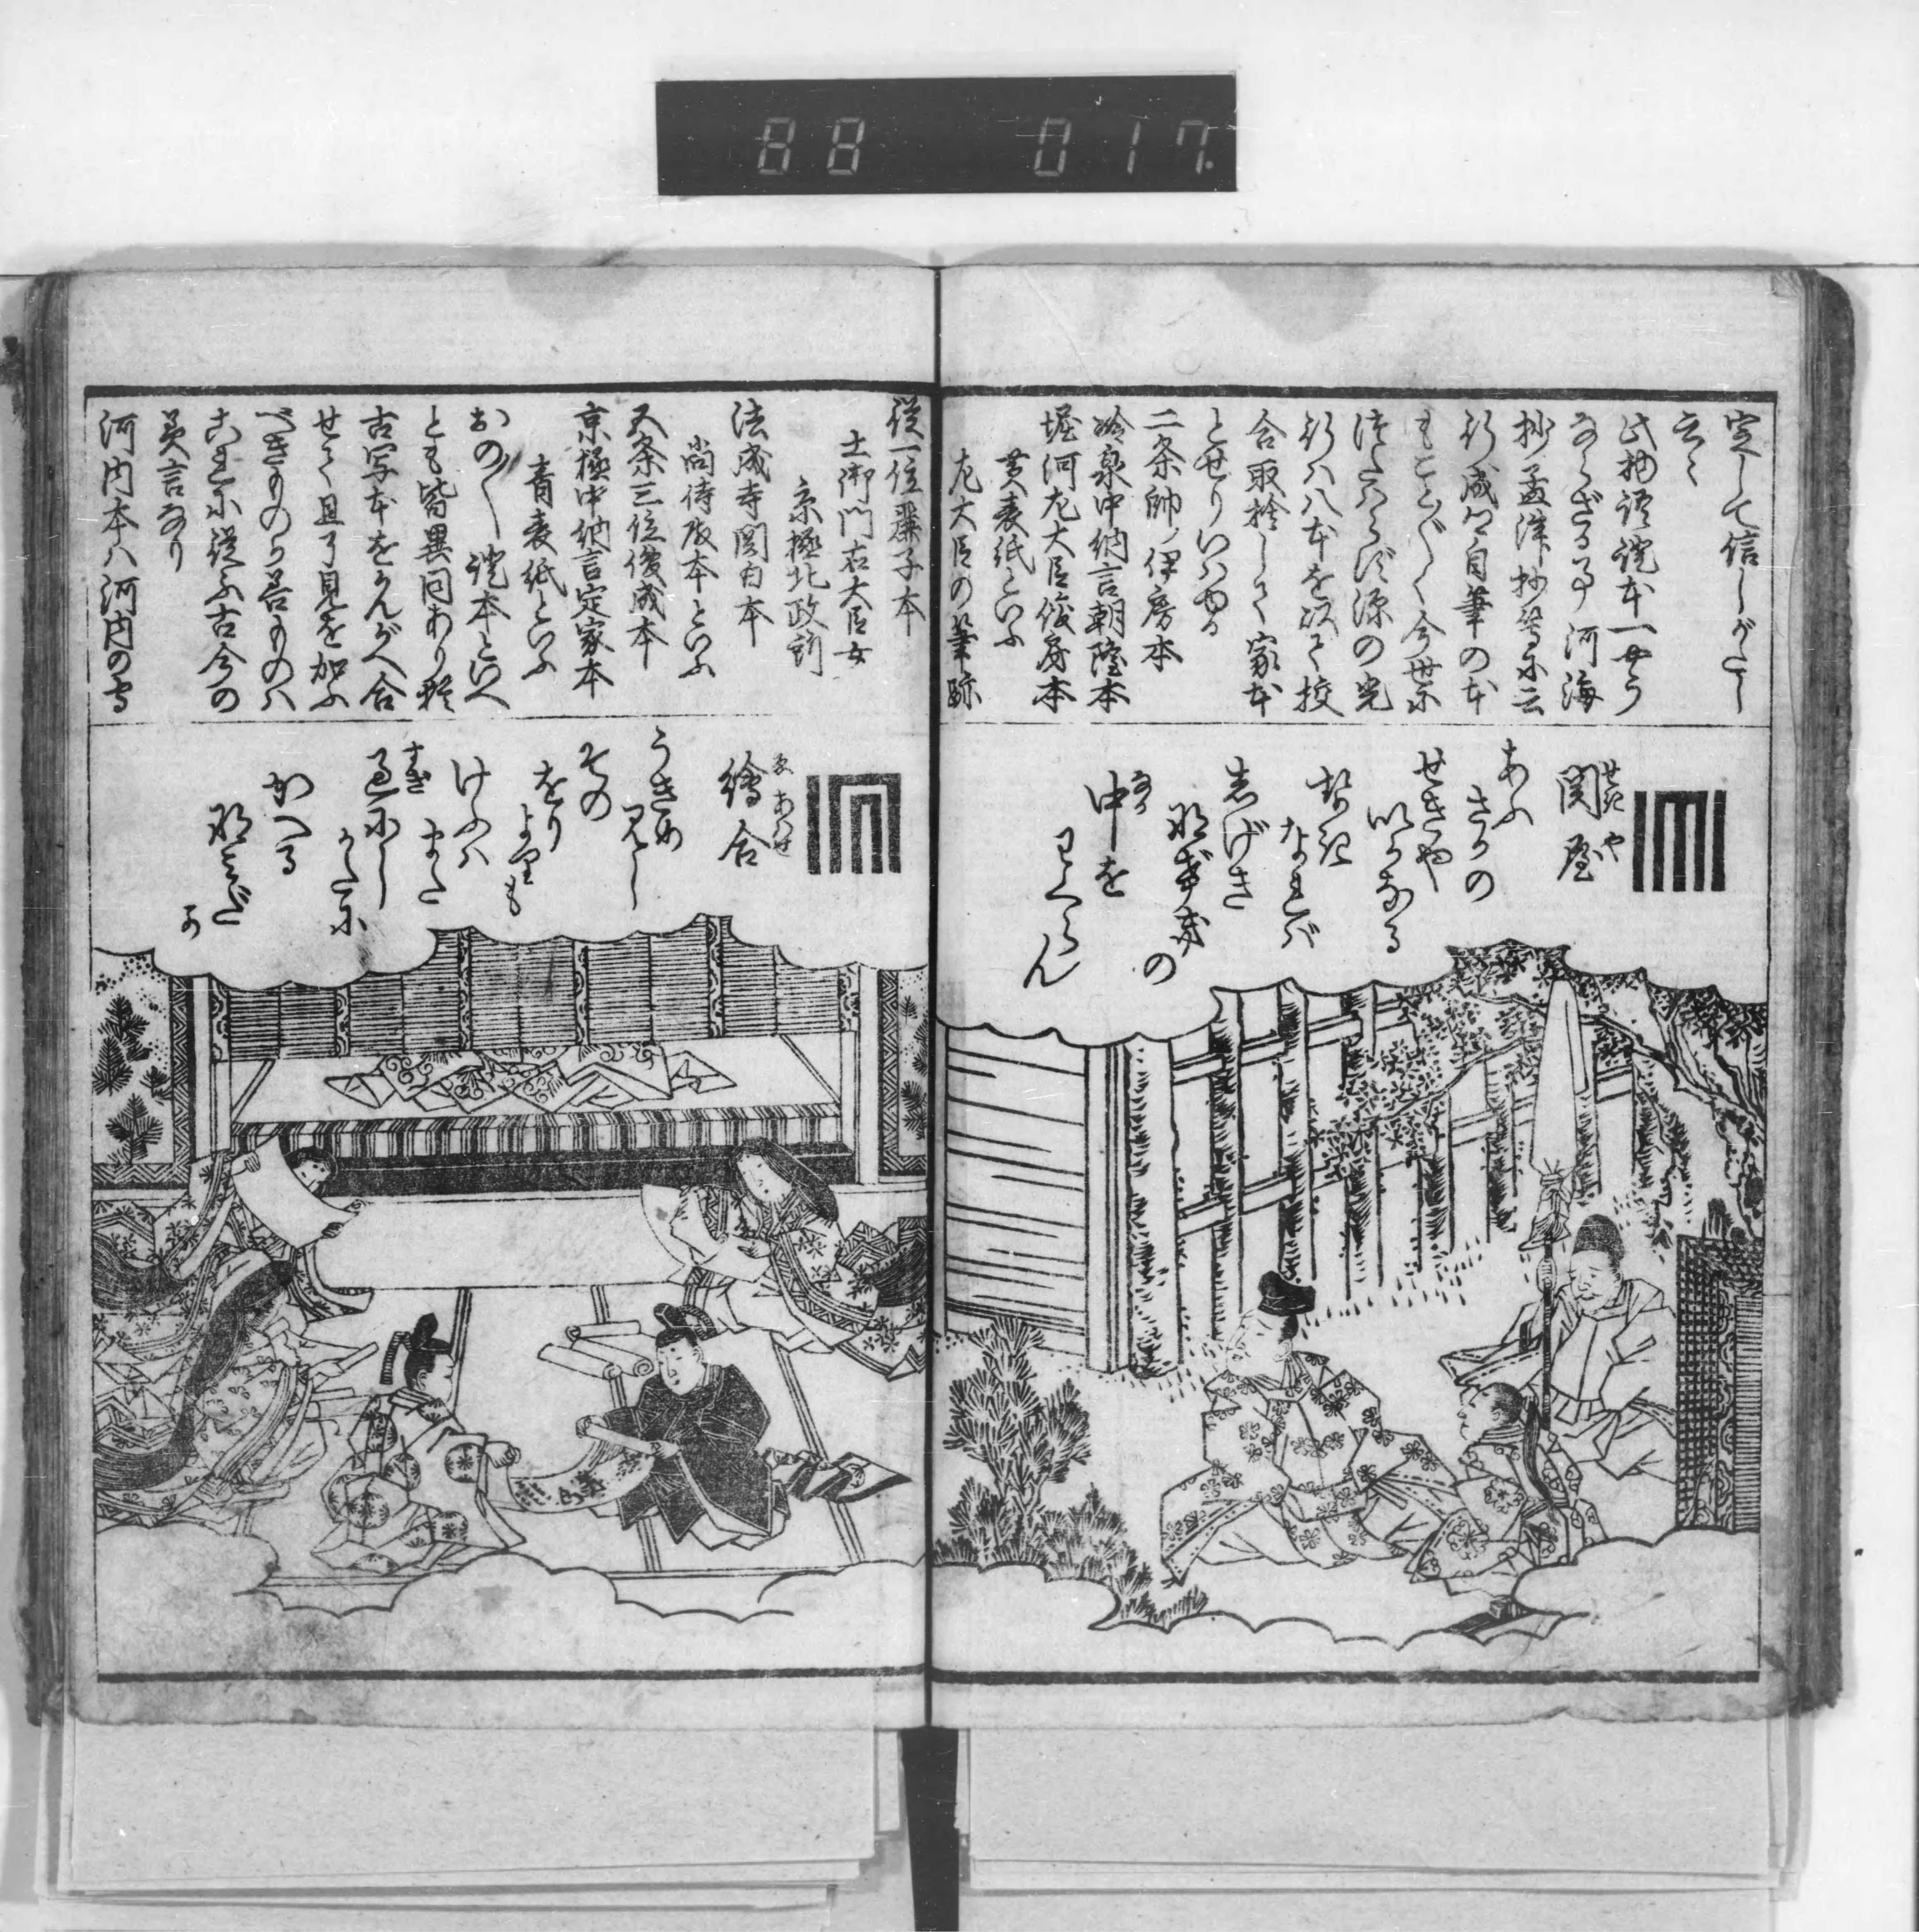 88 017.
定して信じがたし
云々
此物語諸本一やう
ならざる事河海
抄孟津抄等に云
行成卿自筆の本
もこと〴〵く今世に
つたはらず源の光
行ハ八本を以て校
合取捨して家本
とせりいはゆる
二条帥ノ伊房本
冷泉中納言朝隆本
堀河左大臣俊房本
黄表紙といふ
左大臣の筆跡
従一位麗子本
土御門右大臣女
京極北政所
法成寺関白本
尚侍殿本といふ
五条三位俊成本
京極中納言定家本
青表紙といふ
おの〳〵証本といへ
とも皆異同あり彼
古写本をかんがへ合
せて且了見を加ふ
べきものか若ものハ
これに従ふ古今の
美言なり
河内本ハ河内の守
関屋
せきや
あふ
さかの
せきや
いかなる
せき
なれば
しげき
なげきの
中を
なか
わくらん
繪合
ゑあはせ
うきめ
見し
その
をり
よりも
けふハ
また
過にし
すぎ
かたに
かへる
なみだ
か